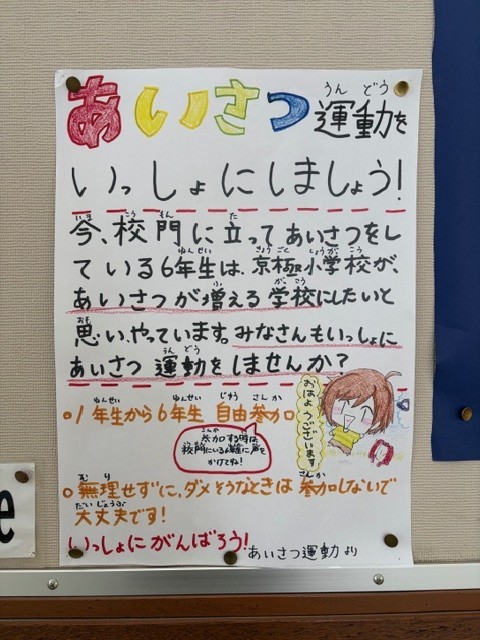 あいさつ運動を
いっしょにしましょう!
今、校門に立ってあいさつをし
ている6年生は、京極小学校が、
あいさつが増える学校にしたいと
思い、やっています。みなさんもいっしょに
あいさつ運動をしませんか?
○1年生から6年生 自由参加
参加する時は、
校門にいる6年生に声を
かけてね!
おはようございます
○無理せずに、ダメそうなときは参加しないで
大丈夫です!
いっしょにがんばろう!
あいさつ運動より
e